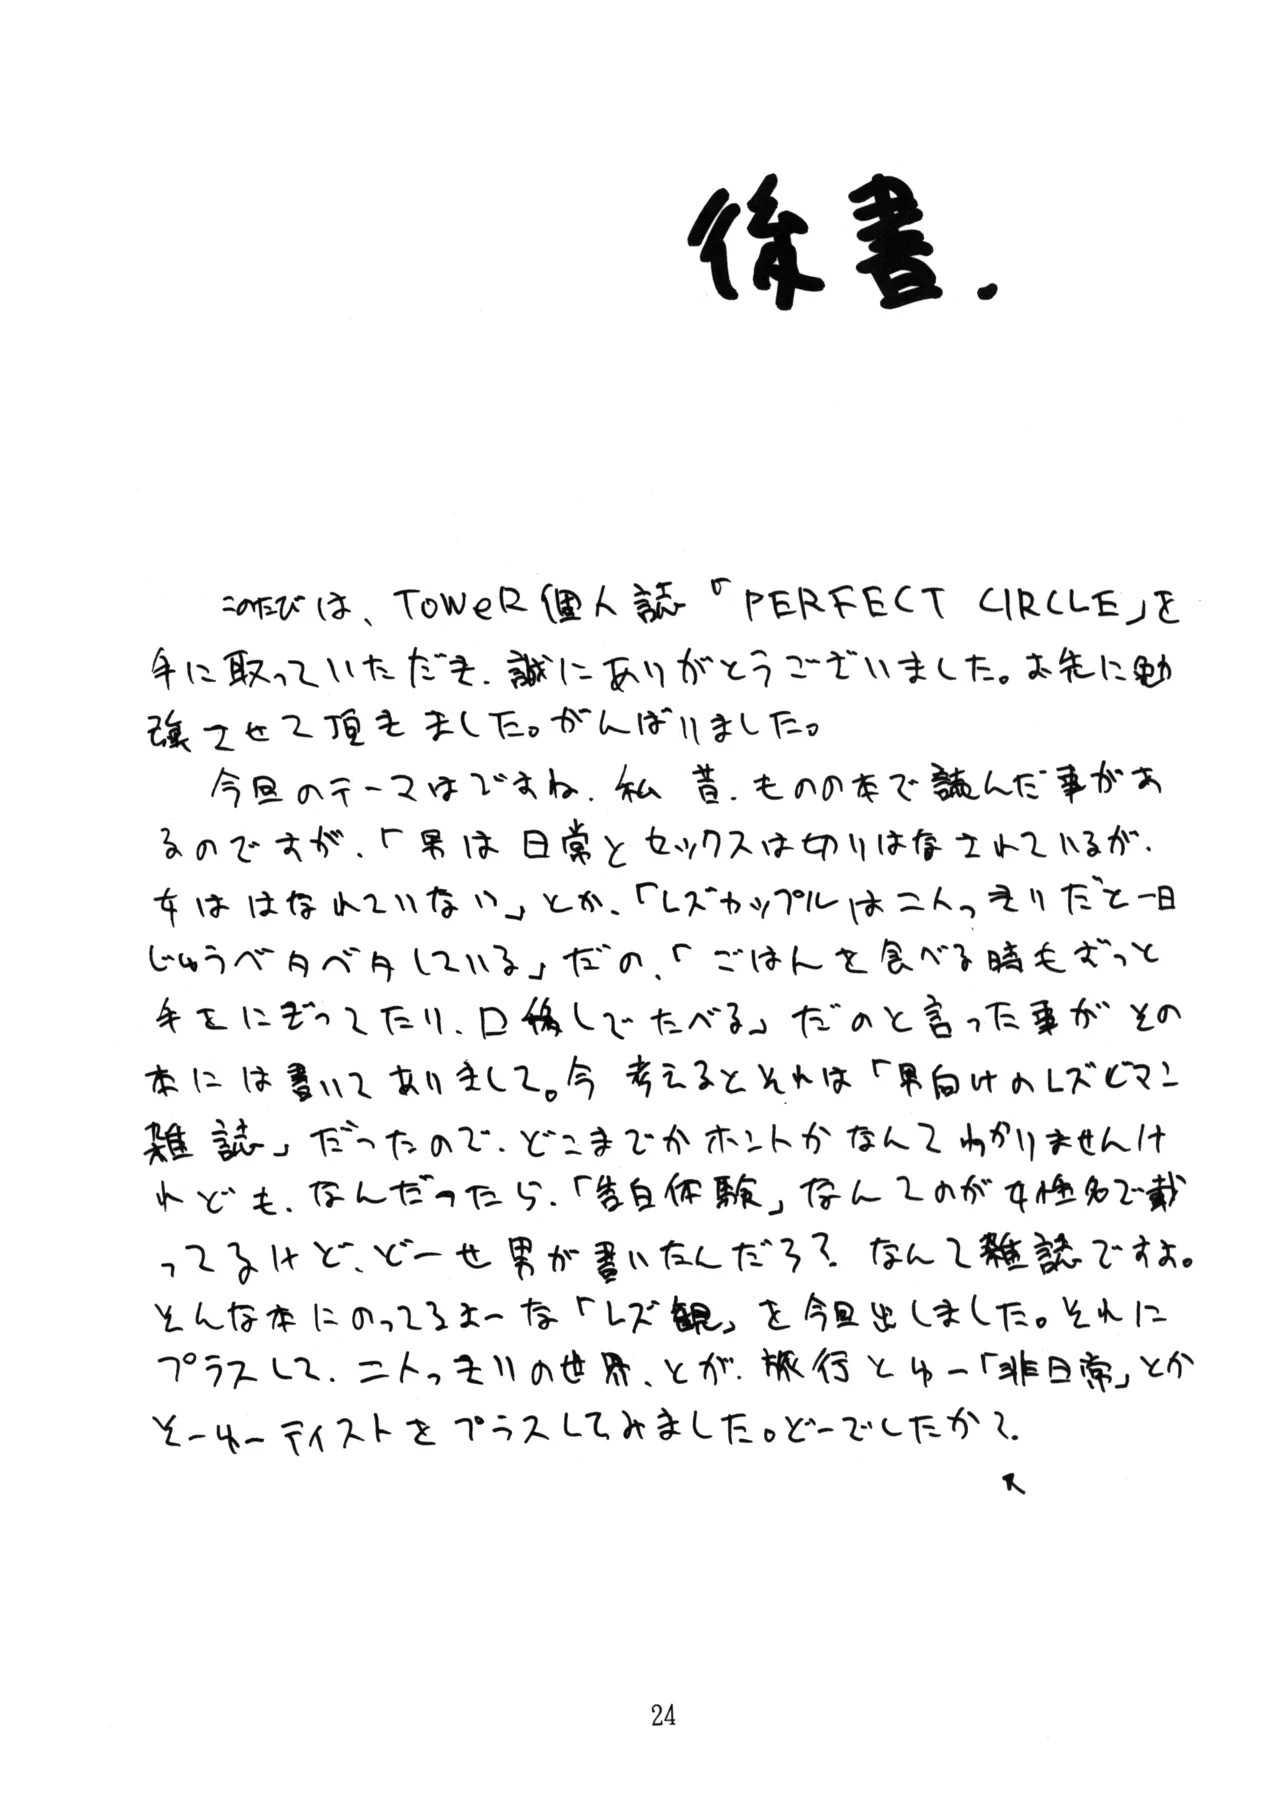 後書.
このたびは、TOWeR個人誌「PERFECT CIRCLE」を
手に取っていただき、誠にありがとうございました。お先に勉
強させて頂きました。がんばりました。
今回のテーマはですね、私 昔、ものの本で読んだ事があ
るのですが、「男は日常とセックスは切りはなされているが、
女ははなれていない」とか、「レズカップルは二人っきりだと一日
じゅうベタベタしている」だの、「ごはんを食べる時もずっと
手をにぎってたり、口移しでたべる」だのと言った事がその
本には書いてありまして。今 考えるとそれは「男向けのレズビアン
雑誌」だったので、どこまでがホントかなんてわかりませんけ
れども、なんだったら、「告白体験」なんてのが女性名で載
ってるけど、どーせ男が書いたんだろ?なんて雑誌ですよ。
そんな本にのってるよーな「レズ観」を今回出しました。それに
プラスして、二人っきりの世界、とか、旅行とゆー「非日常」とか
そーゆーテイストをプラスしてみました。どーでしたか?
24